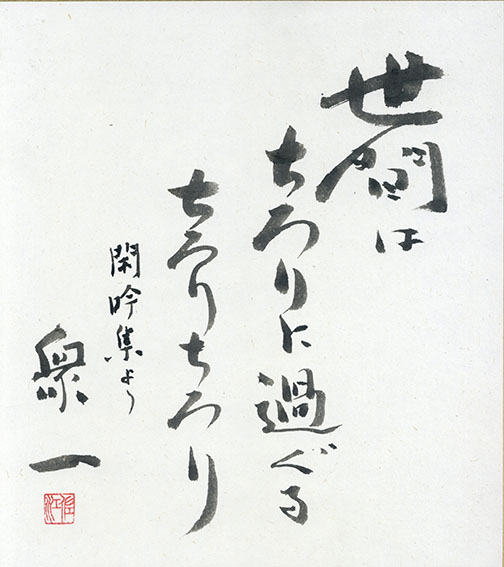 世間は
ちろりに過ぐる
ちろりちろり
閑吟集より
衆一